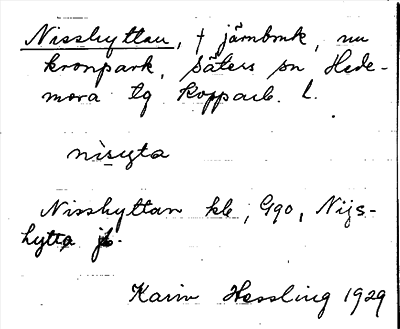 Nisshyttan, † järnbruk, nu
kronpark, Säters sn Hede-
mora tg Kopparb. l.
nìsyta
Nisshyttan kb, Gqo, Nijs-
hytta jb.
Karin Hessling 1929